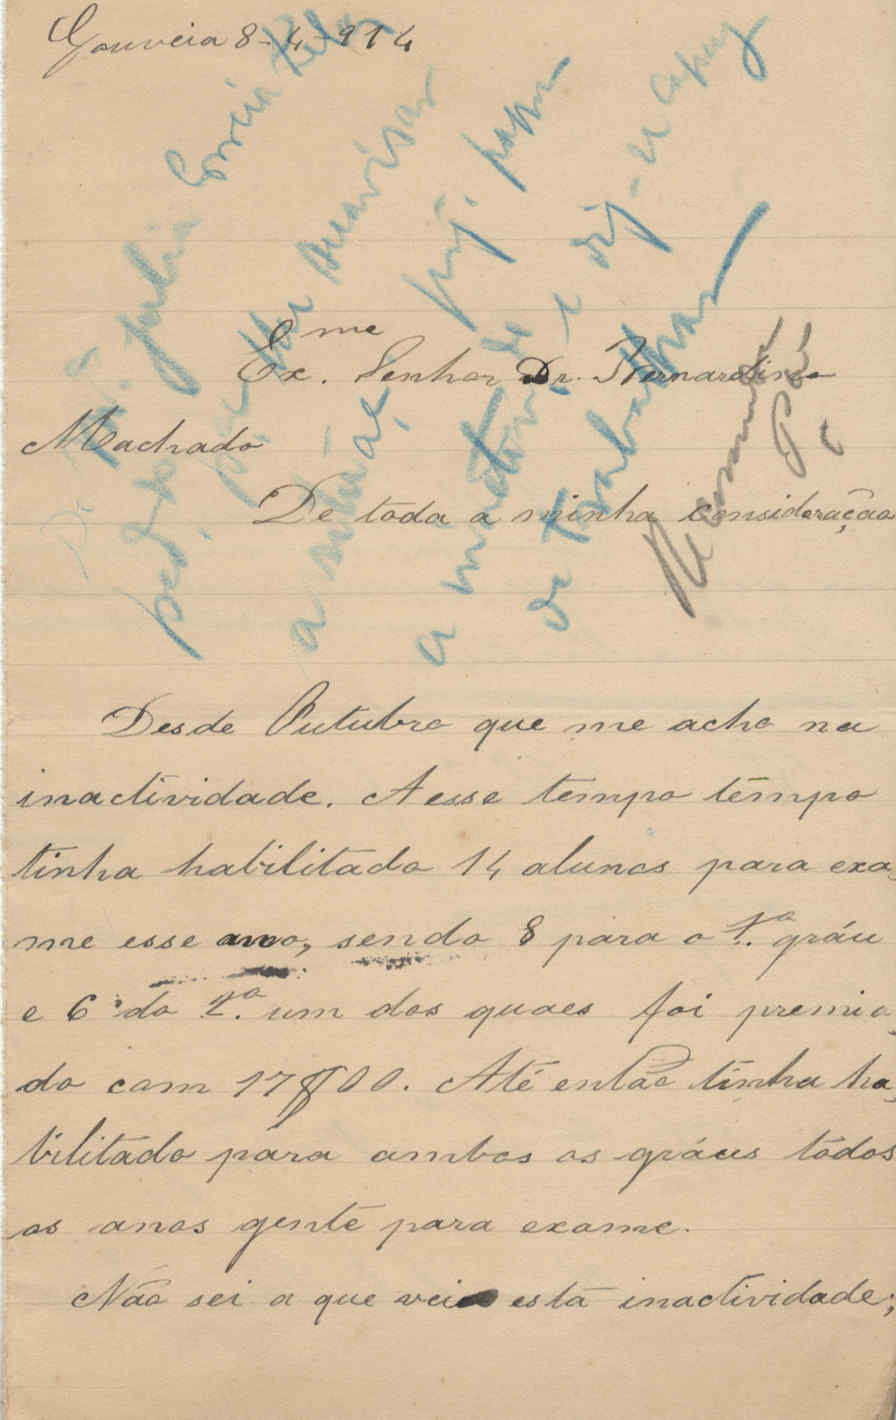 Gouveia 8-4-914
Ex.me Senhor Dr. Bernardino
Machado
De toda a minha consideração
Desde Outubro que me acho na
inactividade. A esse tempo tempo
tinha habilitado 14 alunos para exa-
me esse ano, sendo 8 para o 1.º gráu
e 6 do 2.º um dos quaes foi premia-
do com 17$00. Até então tinha ha-
bilitado para ambos os gráus todos
os anos gente para exame.
Não sei a que vei esta inactividade;
D. Julia
a inactivid.de e diz-se capaz
de trabalhar